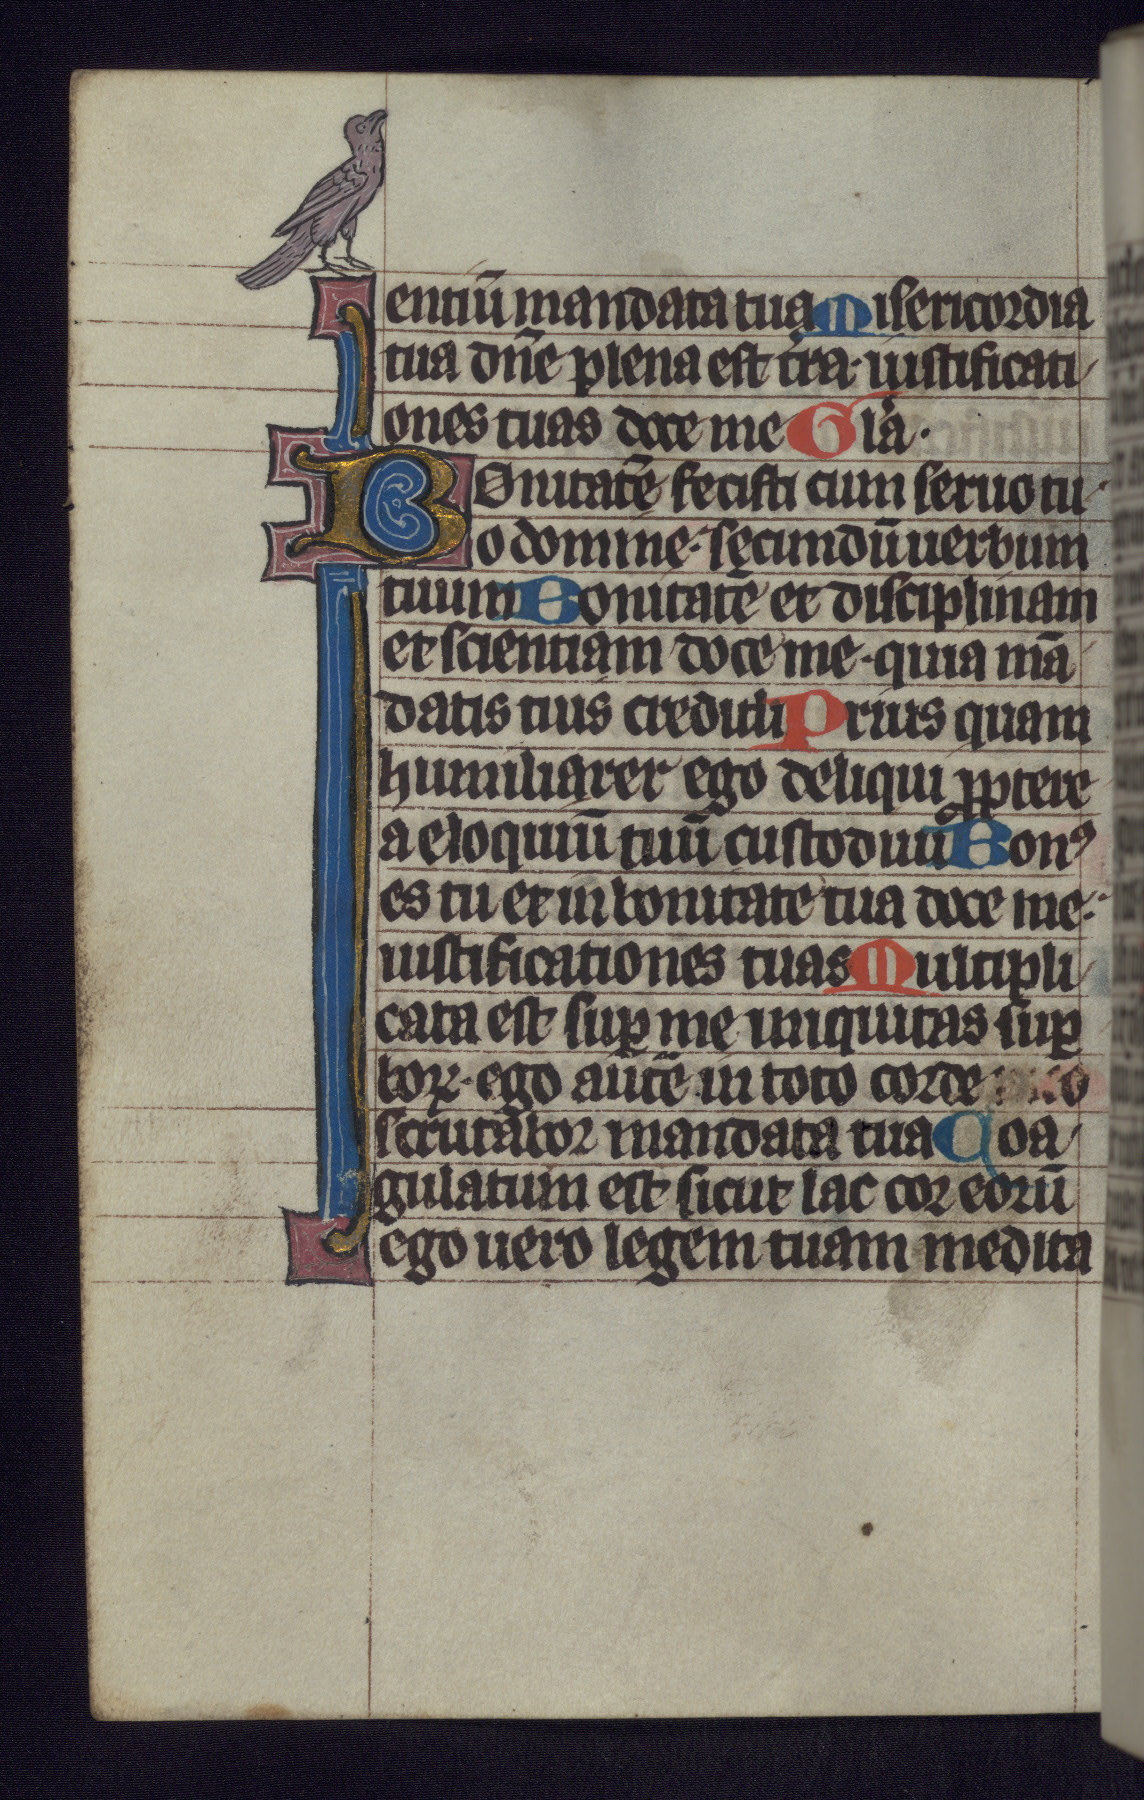 entiū mandata tua Misericordia
tua dn̄e plena est tr̄a· iustificati
ones tuas doce me Gl'a·
Bonitatē fecisti cum seruo tu
o domine· secundū uerbum
tuum Bonitatē et disciplinam
et scientiam doce me· quia mā
datis tuis credidi Prius quam
humiliarer ego deliqui ꝓptere
a eloquiū tuū custodiui Bonꝰ
es tu et in bonitate tua doce me·
iustificationes tuas Multipli
cata est suꝑ me iniquitas suꝑ
boꝝ· ego aut̄e in toto corde
scrutabor mandata tua Coa
gulatum est sicut lac cor eorū
ego uero legem tuam medita